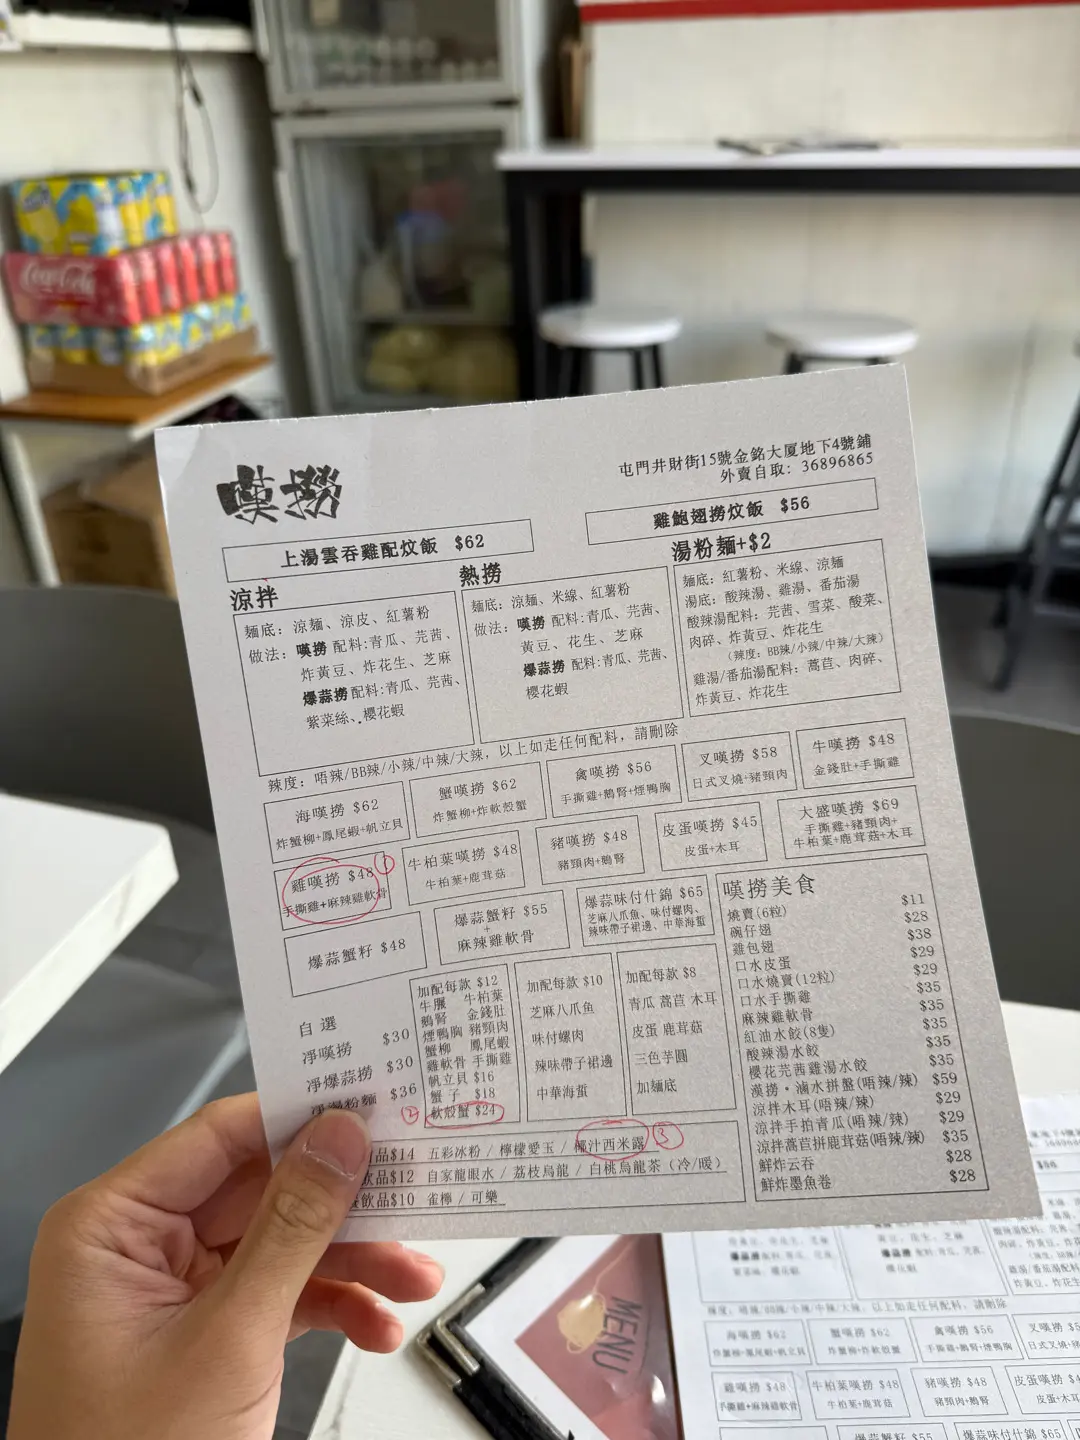 嘆撈
屯門井財街15號金銘大厦地下4號鋪
外賣自取: 36896865
上湯雲吞雞配炆飯 $62
雞鮑翅撈炆飯 $56
涼拌
麵底: 涼麵、涼皮、紅薯粉
做法: 嘆撈 配料:青瓜、芫茜、
炸黃豆、炸花生、芝麻
爆蒜撈 配料:青瓜、芫茜、
紫菜絲、櫻花蝦
熱撈
麵底: 涼麵、米線、紅薯粉
做法: 嘆撈 配料:青瓜、芫茜、
黃豆、花生、芝麻
爆蒜撈 配料:青瓜、芫茜、
櫻花蝦
湯粉麵+$2
麵底: 紅薯粉、米線、涼麵
湯底: 酸辣湯、雞湯、番茄湯
酸辣湯配料: 芫茜、雪菜、酸菜、
肉碎、炸黃豆、炸花生
(辣度: BB辣/小辣/中辣/大辣)
雞湯/番茄湯配料: 蒿苣、肉碎、
炸黃豆、炸花生
辣度: 唔辣/BB辣/小辣/中辣/大辣, 以上如走任何配料, 請刪除
海嘆撈 $62
炸蟹柳+鳳尾蝦+帆立貝
蟹嘆撈 $62
炸蟹柳+炸軟殼蟹
禽嘆撈 $56
手撕雞+鵝腎+煙鴨胸
叉嘆撈 $58
日式叉燒+豬頸肉
牛嘆撈 $48
金錢肚+手撕雞
雞嘆撈 $48
手撕雞+麻辣雞軟骨
①
牛柏葉嘆撈 $48
牛柏葉+鹿茸菇
豬嘆撈 $48
豬頸肉+鵝腎
皮蛋嘆撈 $45
皮蛋+木耳
大盛嘆撈 $69
手撕雞+豬頸肉+
牛柏葉+鹿茸菇+木耳
爆蒜蟹籽 $48
爆蒜蟹籽 $55
+
麻辣雞軟骨
爆蒜味付什錦 $65
芝麻八爪魚、味付螺肉、
辣味帶子裙邊、中華海蜇
自選
淨嘆撈 $30
淨爆蒜撈 $30
淨湯粉麵 $36
加配每款 $12
牛𦟌 牛柏葉
鵝腎 金錢肚
煙鴨胸 豬頸肉
蟹柳 鳳尾蝦
雞軟骨 手撕雞
帆立貝 $16
蟹子 $18
② 軟殼蟹 $24
加配每款 $10
芝麻八爪魚
味付螺肉
辣味帶子裙邊
中華海蜇
加配每款 $8
青瓜 蒿苣 木耳
皮蛋 鹿茸菇
三色芋圓
加麵底
嘆撈美食
燒賣(6粒) $11
碗仔翅 $28
雞包翅 $38
口水皮蛋 $29
口水燒賣(12粒) $29
口水手撕雞 $35
麻辣雞軟骨 $35
紅油水餃(8隻) $35
酸辣湯水餃 $35
櫻花芫茜雞湯水餃 $35
漢撈・滷水拼盤(唔辣/辣) $59
涼拌木耳(唔辣/辣) $29
涼拌手拍青瓜(唔辣/辣) $29
涼拌蒿苣拼鹿茸菇(唔辣/辣) $35
鮮炸云吞 $28
鮮炸墨魚卷 $28
品$14 五彩冰粉 / 檸檬愛玉 / 椰汁西米露 ③
飲品$12 自家龍眼水 / 荔枝烏龍 / 白桃烏龍茶 (冷/暖)
飲品$10 雀檸 / 可樂
Coca-Cola
MENU
辣度: 唔辣/BB辣/小辣/中辣/大辣, 以上如走任何配料, 請刪除
海嘆撈 $62
炸蟹柳+鳳尾蝦+帆立貝
蟹嘆撈 $62
炸蟹柳+炸軟殼蟹
禽嘆撈 $56
手撕雞+鵝腎+煙鴨胸
叉嘆撈 $5
日式叉燒+豬
雞嘆撈 $48
手撕雞+麻辣雞軟骨
牛柏葉嘆撈 $48
牛柏葉+鹿茸菇
豬嘆撈 $48
豬頸肉+鵝腎
皮蛋嘆撈 $4
皮蛋+木耳
爆蒜蟹籽 $55
爆蒜味付什錦 $65